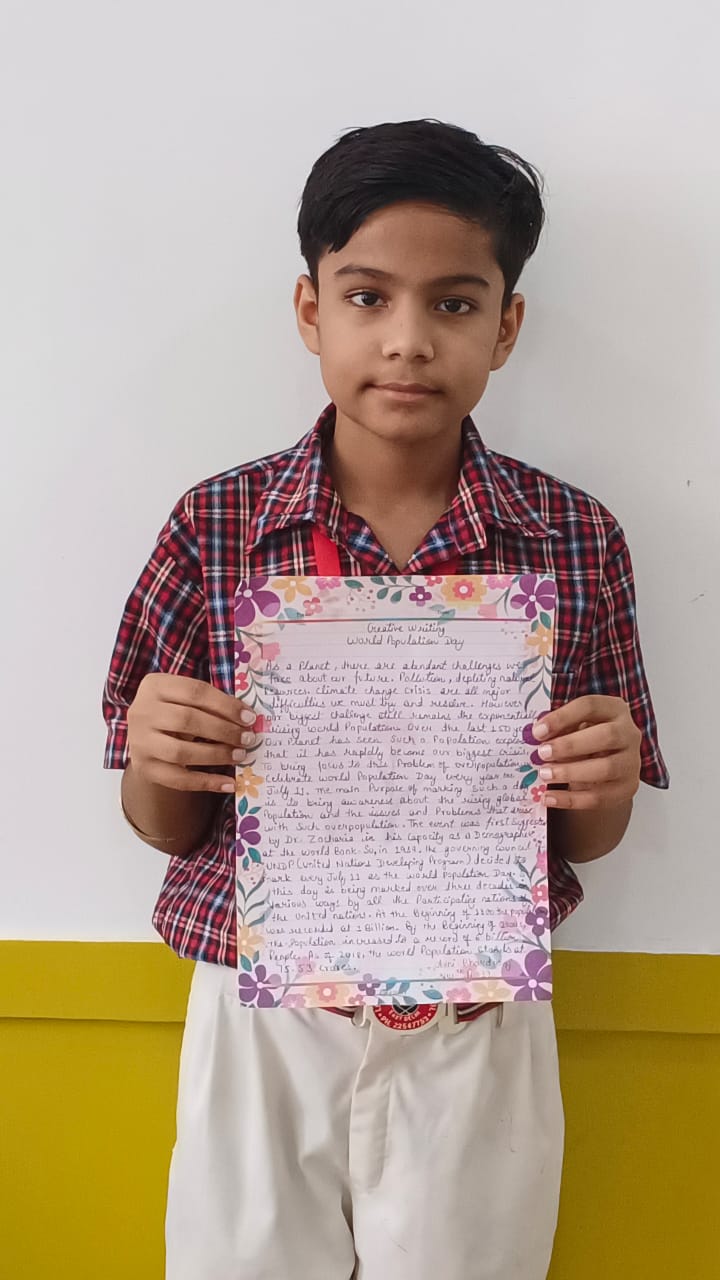 Creative Writing
World Population Day
As a Planet, there are abundant challenges we
face about our future. Pollution, depleting natural
resources, climate change crisis are all major
difficulties we must try and resolve. However
our biggest challenge still remains the exponentially
rising world Population. Over the last 150 years
Our Planet has seen Such a Population
that it has rapidly become our biggest crisis.
To bring focus to this Problem of overpopulation, we
Celebrate World Population Day every year on
July 11. The main Purpose of marking Such a day
is to bring awareness about the rising global
Population and the issues and Problems that arise
with Such overpopulation. The event was first
by Dr. Zacharia in his Capacity as a Demographer
at the World Bank. So, in 1989, the governing Council
UNDP (United Nations Developing Program) decided to
mark every July 11 as the World Population Day.
this day is being marked over three decades in
various ways by all the Participating nations of
the United nations. At the Beginning of 1800 the
was recorded at 1 Billion. By the Beginning of
The Population increased to a record of 6 billion
People. As of 2018, the world Population Stands at
75.53 Crores.
EAST DELHI
PH. 22547753